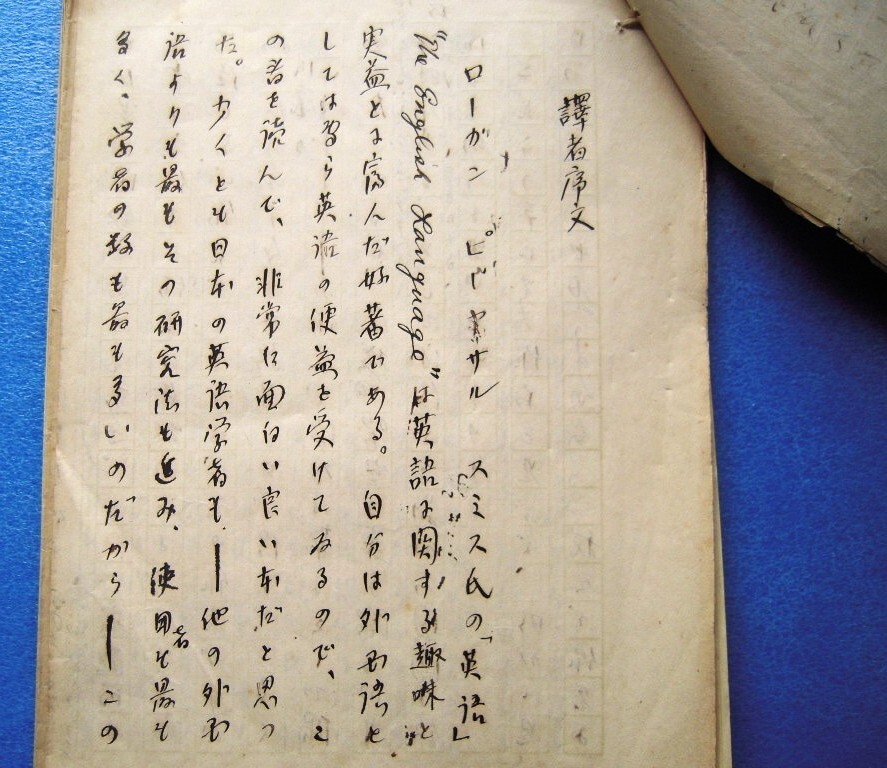 譯者序文
ローガン ピヤサル スミス氏の「英語」
"The English Language"は英語に関する趣味と
実益とに富んだ好著である。自分は外国語と
しては専ら英語の便益を受けてゐるので、こ
の書を読んで、非常に面白い良い本だと思つ
た。少くとも日本の英語学者も、——他の外国
語よりも最もその研究法も進み、使用者も最も
多く、学者の数も最も多いのだから——この